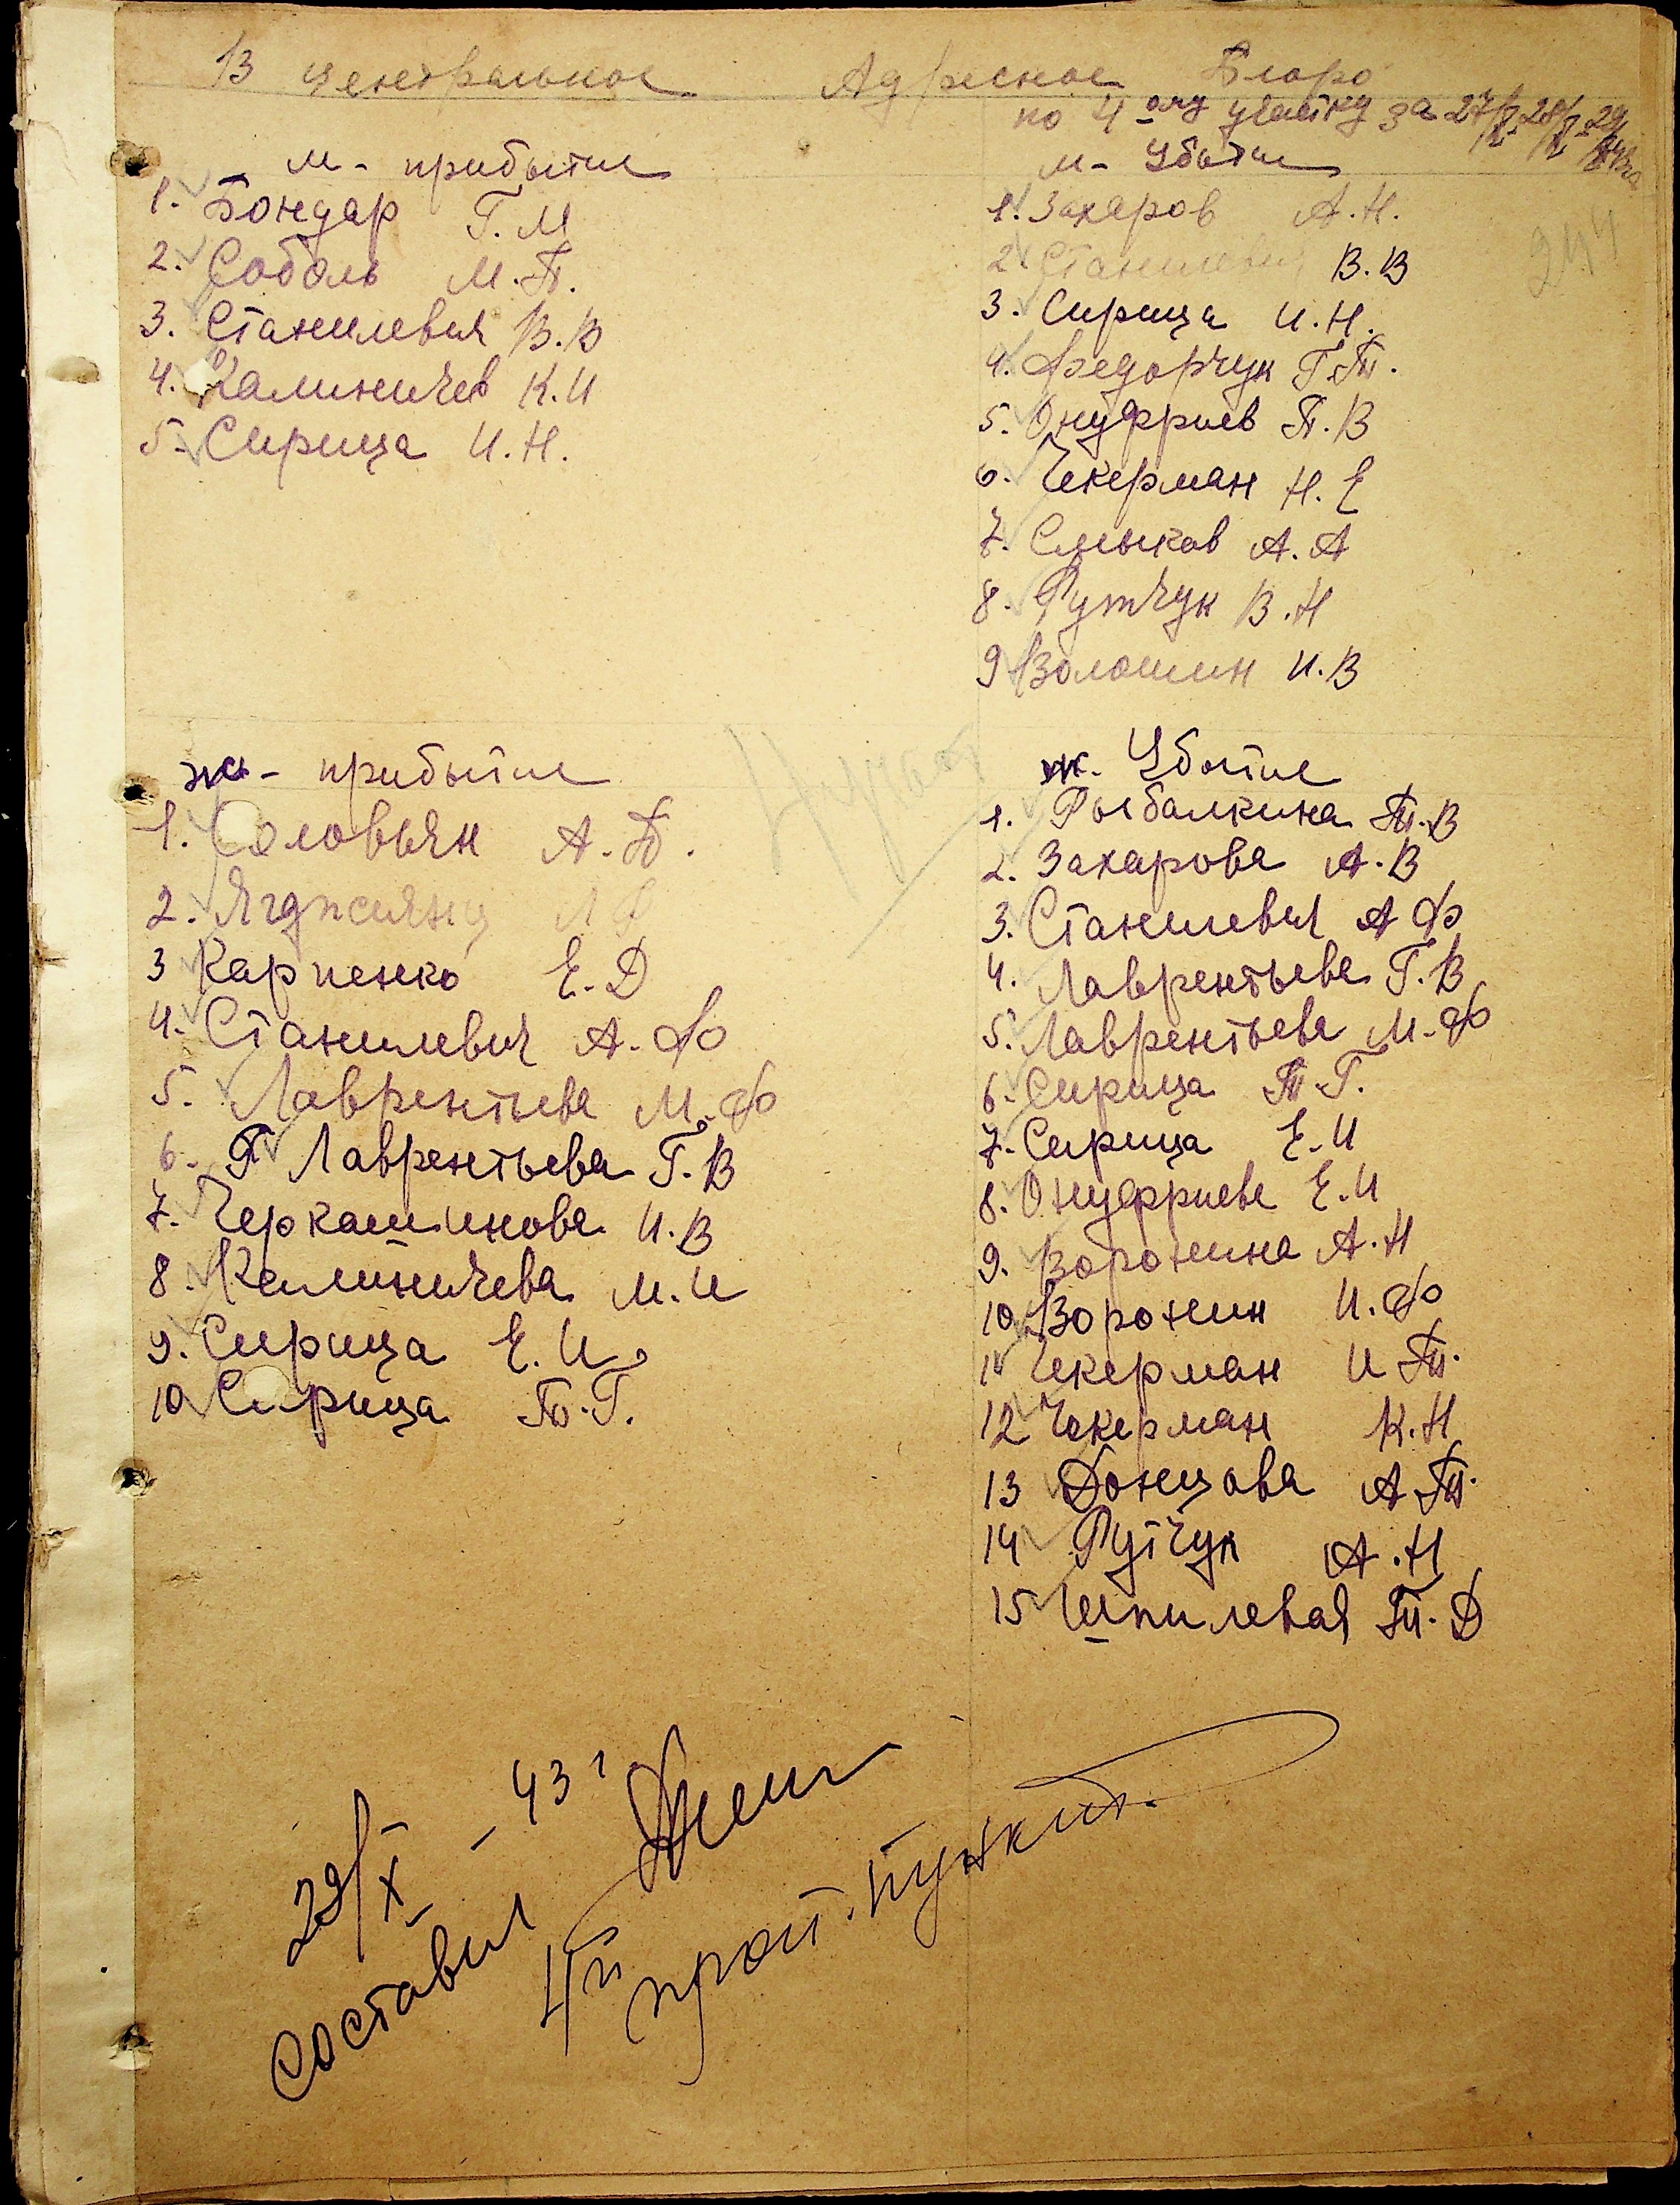 В центральное Адресное Бюро
по 4 ому участку за 27/X 28/X 29/X 43г
м - прибытие
1. Бондар Г. М
2. Соболь М. П.
3. Станилевич В. В
4. Калиничев К. И
5. Сирица И. Н.
м - Убытие
1. Захаров А. Н.
2. Станилевич В. В
3. Сирица И. Н.
4. Федорчук Г. П.
5. Онуфриев П. В
6. Чекерман Н. Е
7. Смыков А. А
8. Рутчук В. Н
9 Волошин И. В
244
ж - прибытие
1. Соловьян А. Б.
2. Ягджиянц
3 Карпенко Е. Д
4. Станилевич А. Ф
5. Лаврентьева М. Ф
6. Лаврентьева Г. В
7. Черкашинова И. В
8 Калиничева М. И
9. Сирица Е. И
10 Сирица Т. Г.
ж. Убытие
1. Рыбалкина Т. В
2. Захарова А. В
3. Станилевич А Ф
4. Лаврентьева Г. В
5. Лаврентьева М. Ф
6. Сирица Т. Г.
7. Сирица Е. И
8. Онуфриева Е. И
9. Воронина А. Н
10 Воронин И. Ф
11 Чекерман И Т.
12 Чекерман К. Н
13 Донцова А Т.
14 Рутчук А. Н
15 Шпилевая Т. Д
29/X - 43 г
составил
4й проп. пункт.